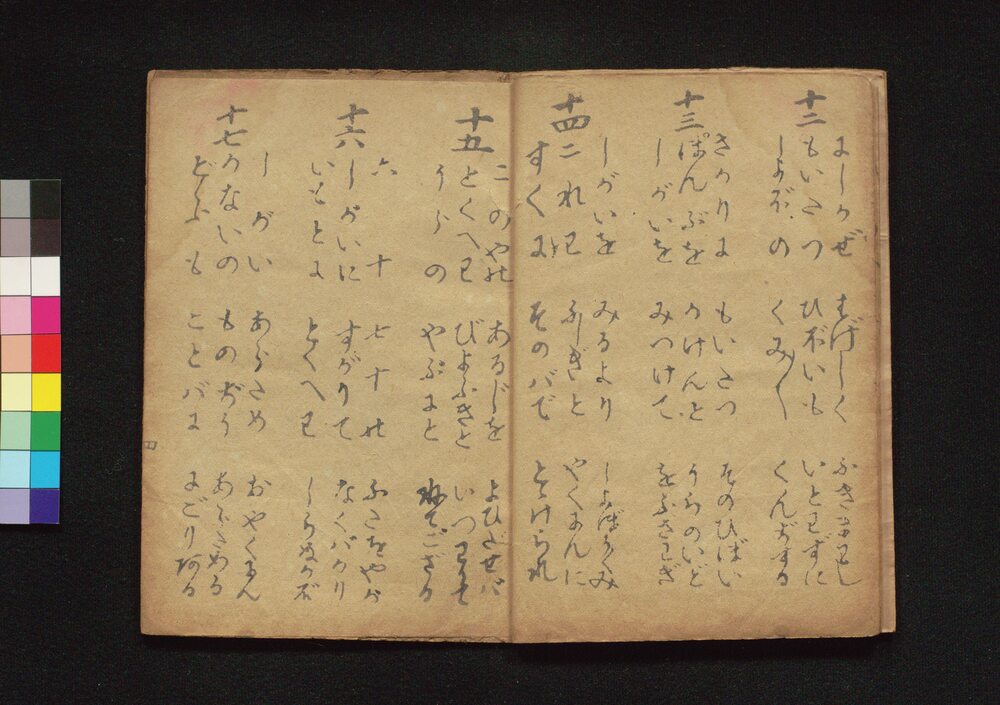 十二
にしかぜ はげしく ふきまわし
もいたつ ひぶいも いとわずに
しよぶの くみ〳〵 くんずする
十三
さかりに もいたつ そのひばい
ぽんぷを かけんと うちのいど
しがいを みつけて をふさわぎ
十四
しがいを みるより しよぼうくみ
二れわ ふしぎと やくにんに
すくに そのバで とゞけられ
十五
二のやの あるじを よびだせバ
とくへわ びよふきと いつわりて
うらの やぶにと ねてござる
十六
六十 七十の ふたをやが
しがいに すがりて なくバかり
いもとに とくへわ しらぬかを
十七
しがい あらため おやくにん
かないの ものぢう あらためる
どふも ことバに にごりある
四